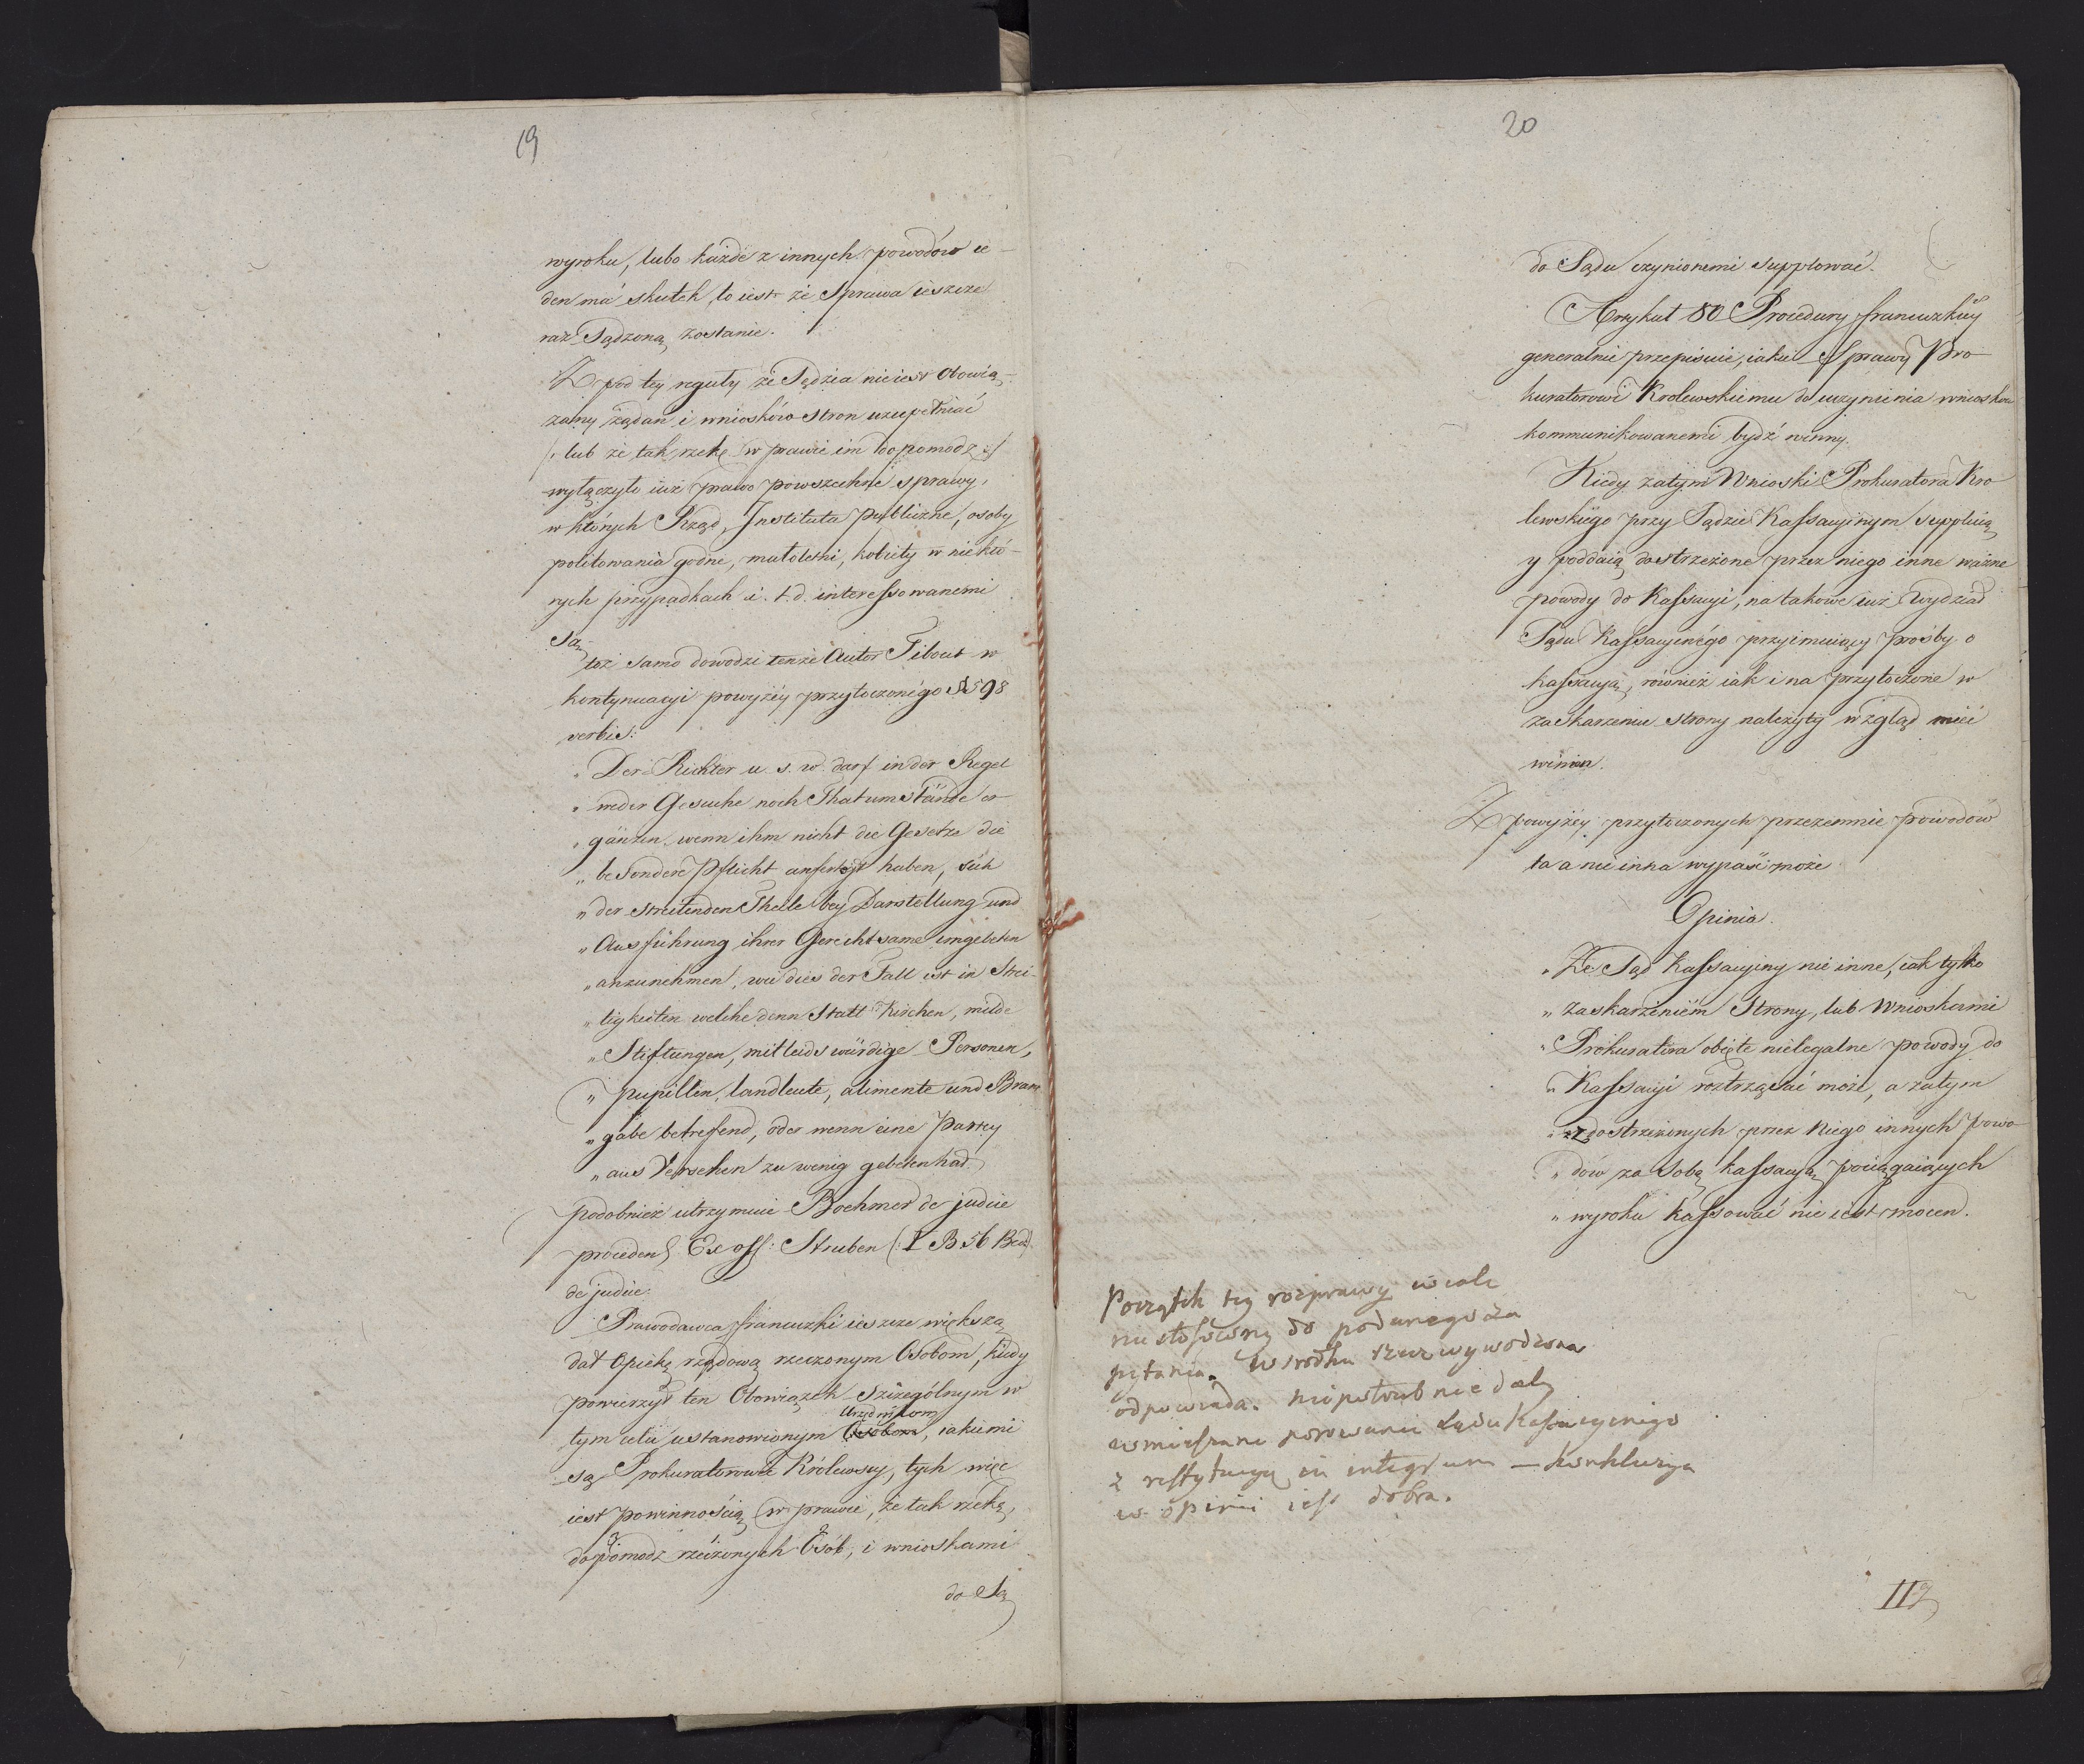 19
wyroku, lubo każde z innych powodów ie-
den má skutek, to iest że Sprawa ieszcze
raz Sądzoną zostanie.
Z pod tey reguły że Sędzia nie iest Obowią-
zany żądań i wniosków Stron uzupełniać
/: lub że tak rzekę w prawie im dopomodz :/
wyłączyło iuż prawo powszechne sprawy,
w których Rząd, Instituta publiczne, osoby
politowania godne, małoletni, kobiety w niektó-
rych przypadkach i. t. d. interessowanemi
Są
toż samo dowodzi tenże Autor Tibout w
kontynuacyi powyżéy przytoczonégo § 598
verbis:
„ Der Richter u. s. w. darf in der Regel
„ weder Gesuche noch Thatumstände er-
„ gänzen, wenn ihm nicht die Gesetze die
„ besondere Pflicht auferlegt haben, sich
„ der streitenden Theile bey Darstellung und
„ Ausführung ihrer Gerechtsame ungebeten
„ anzunehmen, wie dies der Fall ist in Strei-
„ tigkeiten welche denn Statt Kirchen, milde
„ Stiftungen, mitleidswürdige Personen,
„ pupillen, landleute, alimente und Braut
„ gabe betrefend, oder wenn eine Partey
„ aus Versehen zu wenig gebeten hat.
podobnież utrzymuie Boehmer de judice
proceden Ex off: Struben (: I B 56 Bed:)
de judice.
Prawodawca francuzki ieszcze większą
dał Opiekę rządową rzeczonym Osobom, kiedy
powierzył ten Obowiązek Szczególnym w
Urzędnikom
tym celu ustanowionym Osobom, iakiemi
są Prokuratorowie Królewscy, tych więc
iest powinnością w prawie, że tak rzekę,
dopomodz rzeczonych Osób, i wnioskami
do Są
20
do Sądu czynionemi supplować.
Artykuł 80 Procedury francuzkiéy
generalnie przepisuie, iakie Sprawy Pro-
kuratorowi Krolewskiemu do uczynienia wniosków
kommunikowanemi bydź winny.
Kiedy zatym Wnioski Prokuratora Kro
lewskiégo przy Sądzie Kassacyinym suppluią
y poddaią dostrzeżone przez niego inne ważne
powody do Kassacyi, na takowe iuż Wydział
Sądu Kassacyinégo przyimuiący prośby o
kassacyią, również iak i na przytoczone w
zaskarzeniu strony należyty wzgląd mieć
winien.
Z powyżéy przytoczonych przezemnie powodów
ta a nie inna wypaść może
Opinia.
„ Że Sąd Kassacyiny nie inne, iak tylko
„ zaskarżeniém Strony, lub Wnioskami
„ Prokuratora obięte nielegalne powody do
„ Kassacyi roztrząsać może, a zatym
„ z dostrzeżonych przez niego innych powo-
„ dów za Sobą kassacyią pociągaiących
„ wyroku kassować nie iest mocen.
Początek tey rozprawy wcale
nie stosowny do podanego za
pytania. W srodku rzecz wywodzona
odpowiada. niepotrzebnie daléy
wmieszane porównanie Sądu Kassacyinego
z restytucyą in integrum — konkluzya
w opinii iest dobra.
II